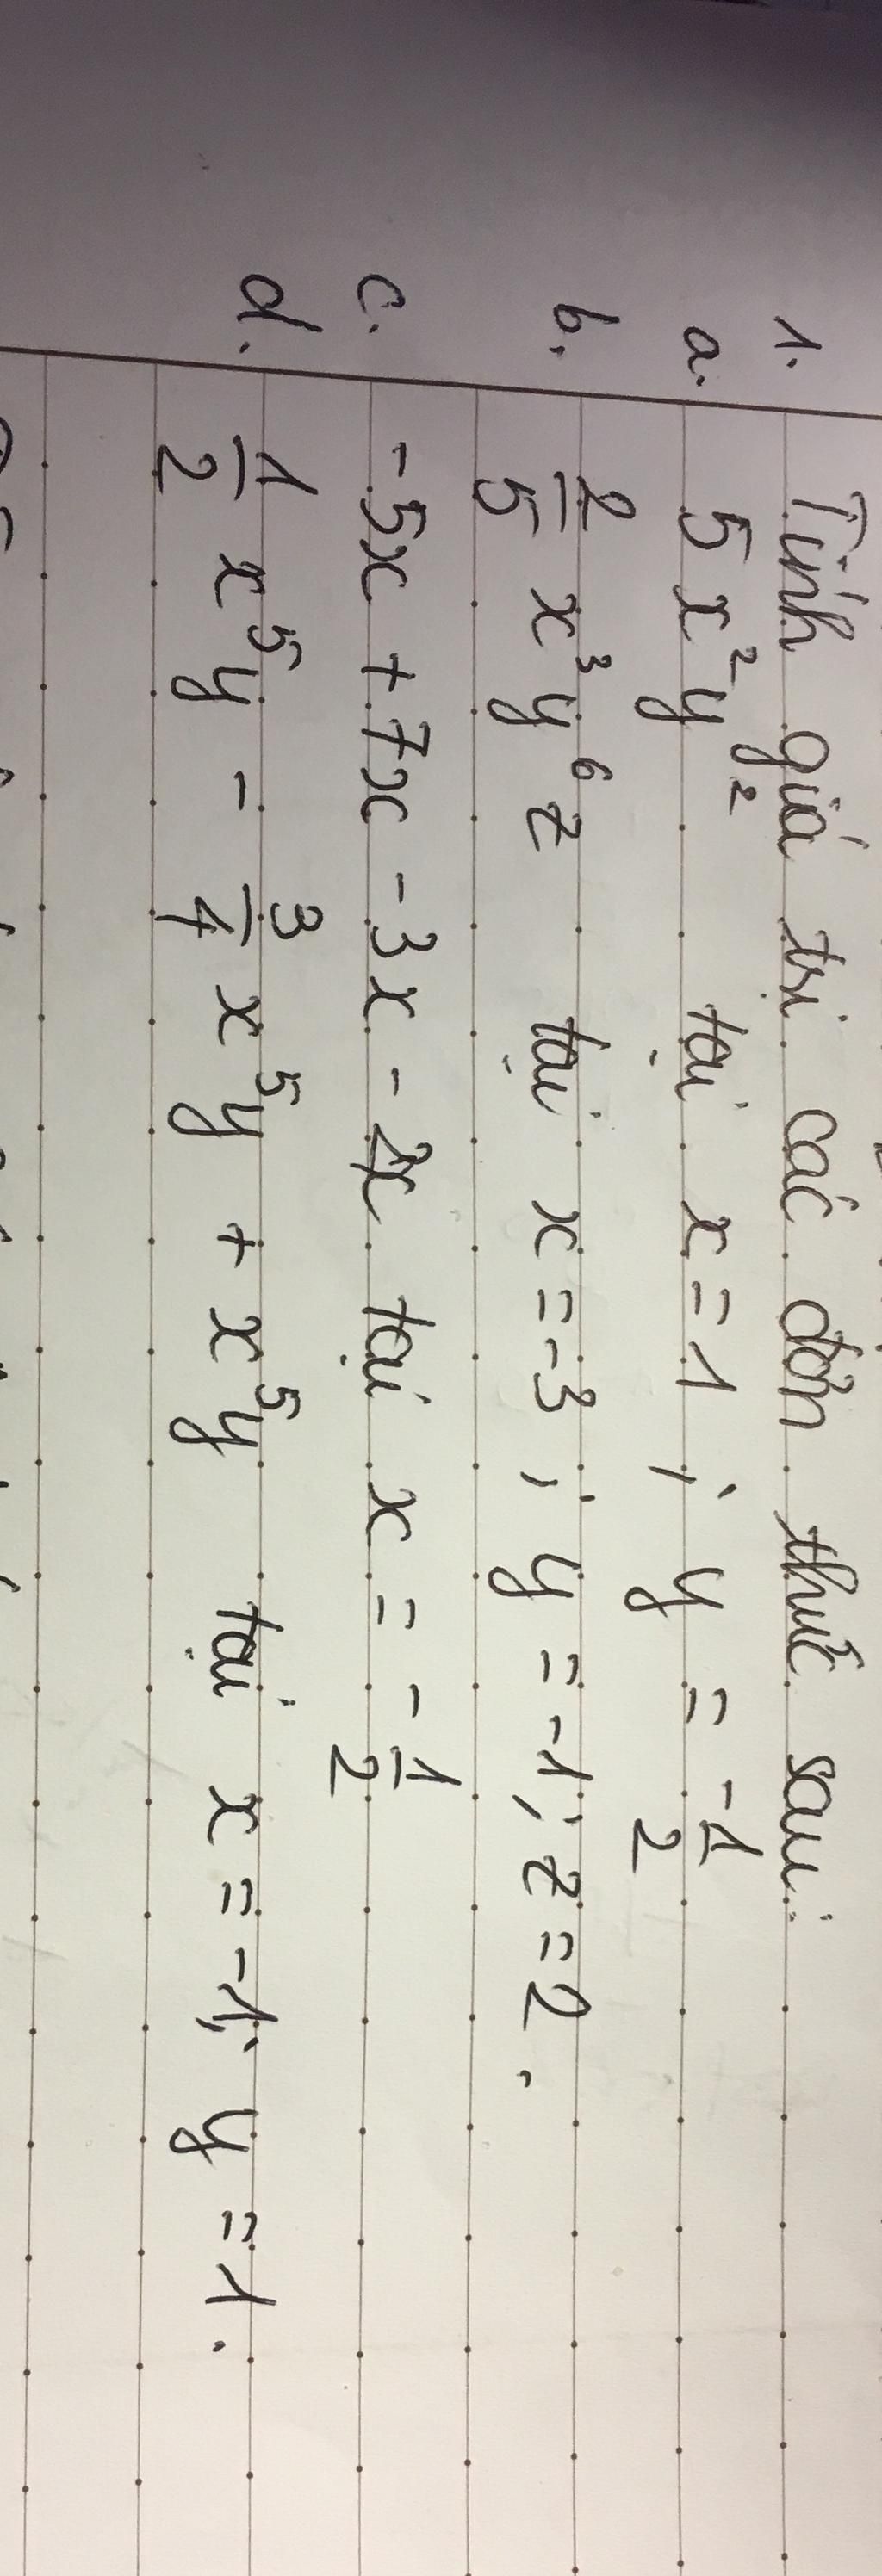 1. Tính giá trị các đơn thức sau:
a. 5x²y² tại x = 1 ; y = -1/2
b. 2/5 x³y⁶z tại x = -3 ; y = -1; z = 2.
c. -5x + 7x - 3x - 2x tại x = - 1/2
d. 1/2 x⁵y - 3/4 x⁵y + x⁵y tại x = -1; y = 1.